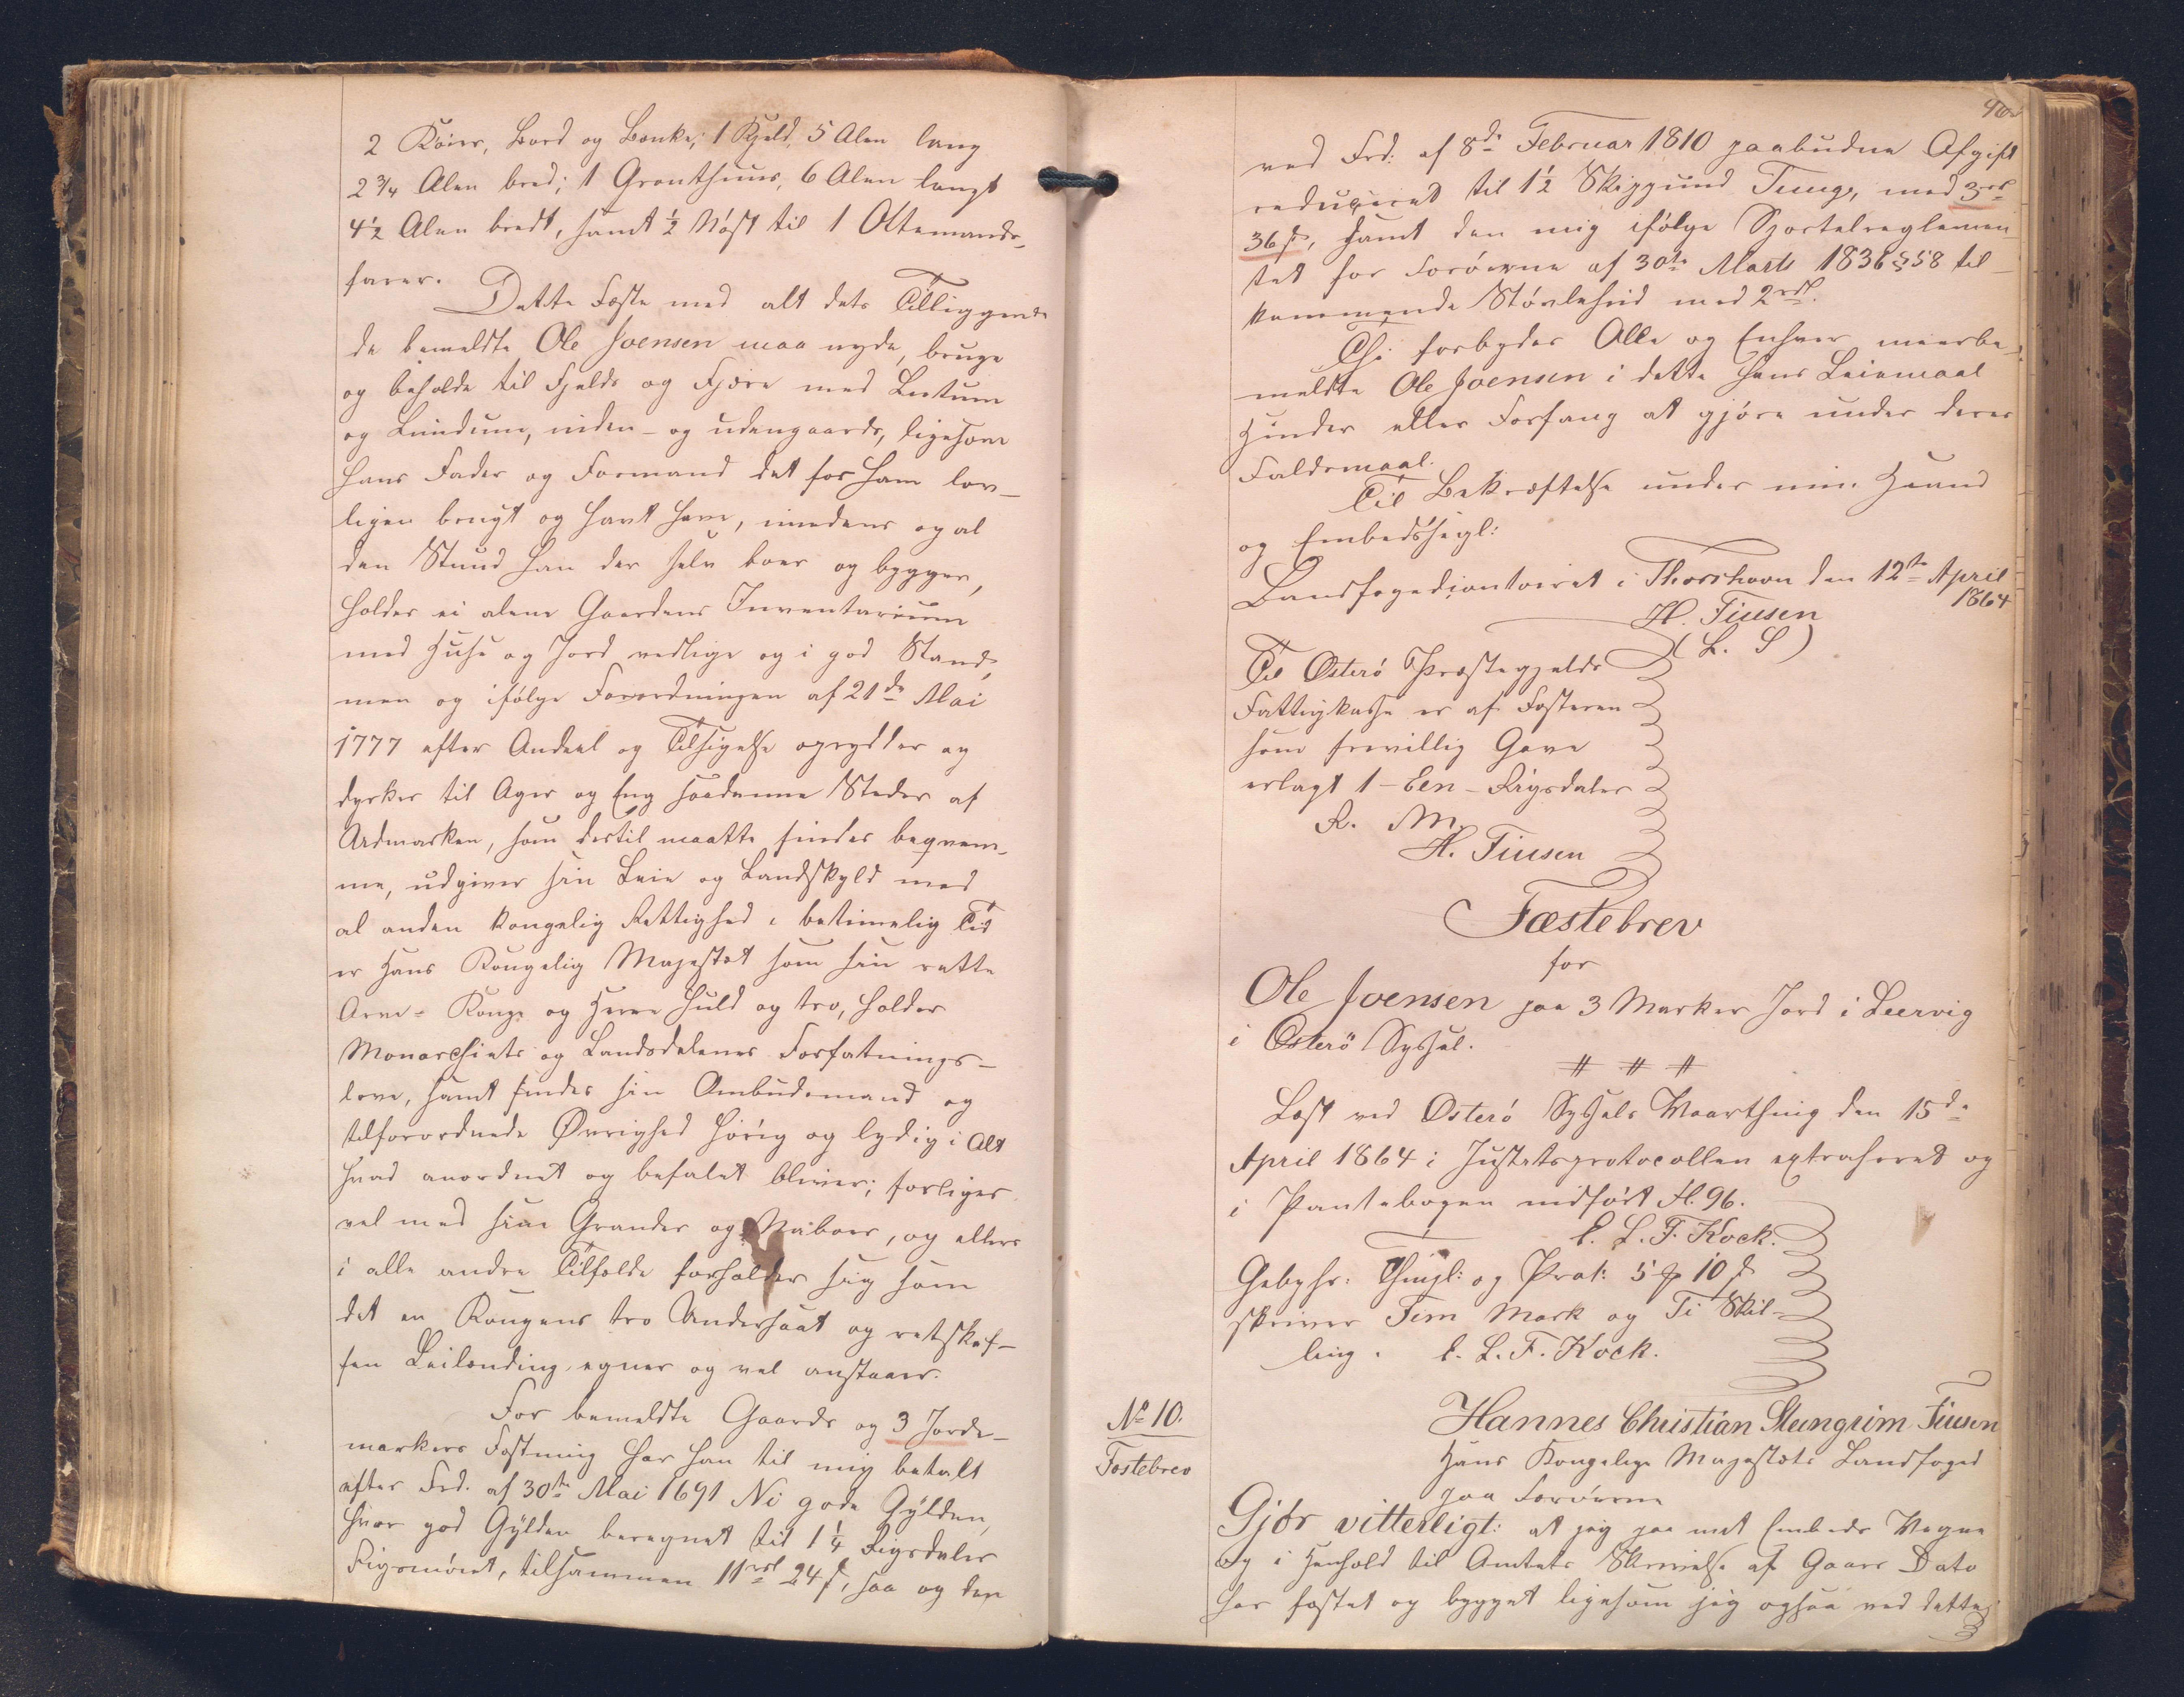 2 Köier, Bord og Bænke; 1 Kjeld, 5 Alen lang
2 3/4 Alen bred; 1 Grouthuus, 6 Alen langt
4½ Alen bredt, samt ½ Nøst til 1 Ottemands-
farer.
Dette Fæste med alt dets Tilliggende
de bemeldte Ole Joensen maa nyde, bruge
og beholde til Fjelds og Fjære med Luttum
og Lundum, inden- og udengaards, ligesom
hans Fader og Formand det for ham lov-
ligen brugt og havt have, imedens og al
den Stund han der selv boer og bygger,
holder ei alene Gaardens Inventarium
med Huse og Jord vedlige og i god Stand,
men og ifølge Forordningen af 21de Mai
1777 efter Andeel og Tilsigelse oprydder og
dyrker til Ager og Eng saadanne Steder af
Udmarken, som dertil maatte findes beqvem-
me, udgiver sin Leie og Landskyld med
al anden kongelig Rettighed i betimelig Tid
er Hans Kongelig Majestæt som sin rette
Arve-Konge og Herre huld og tro, holder
Monarchiets og Landsdelenes Forfatnings-
love, samt findes sin Ombudsmand og
tilforordnede Øvrighed hörig og lydig i Alt
hvad anordnet og befalet bliver; forliges
vel med sine Grander og Naboer, og ellers
i alle andre Tilfælde forholder sig som
det en Kongens tro Undersaat og retskaf-
fen Leilænding egner og vel anstaaer.
For bemeldte Gaards og 3 Jorde-
markers Fæstning har han til mig betalt
efter Frd. af 30te Mai 1691 Ni gode Gylden,
hver god Gylden beregnet til 1¼ Rigsdaler
Rigsmønt, tilsammen 11rdl 24 s, saa og den
96
ved Frd: af 8de Februar 1810 paabudne Afgift
reduceret til 1½ Skippund Tunge, med 3rdl
36 s, samt den mig ifølge Sportelreglemen-
tet for Færöerne af 30te Marts 1836 § 58 til-
kommende Støvlehud med 2rdl.
Thi forbydes Alle og Enhver meerbe-
meldte Ole Joensen i dette hans Leiemaal
Hinder eller Forfang at gjöre under deres
Faldsmaal.
Til Bekræftelse under min Haand
og Embedssegl:
Landfogedcontoiret i Thorshavn den 12te April
1864
H. Finsen
(L. S)
Til Österö Præstegjelds
Fattigkasse er af Fæsteren
som frivillig Gave
erlagt 1 - Een - Rigsdaler
R. M.
H. Finsen
Fæstebrev
for
Ole Joensen paa 3 Marker Jord i Leervig
i Österö Syssel.
# # #
Læst ved Österö Syssels Vaarthing den 15de
April 1864 i Justitsprotocollen extraheret og
i Pantebogen indført fl. 96.
E. L. F. Kock.
Gebyhr: Thingl: og Prot: 5 ℳ 10 s
skriver Fem Mark og Ti Skil-
ling. E. L. F. Kock.
No 10.
Fæstebrev
Hannes Christian Steingrim Finsen
Hans Kongelige Majestæts Landfoged
paa Færöerne
Gjör vitterligt: at jeg paa mit Embeds Vegne
og i Henhold til Amtets Skrivelse af Gaars Dato
har fæstet og bygget ligesom jeg ogsaa ved dette